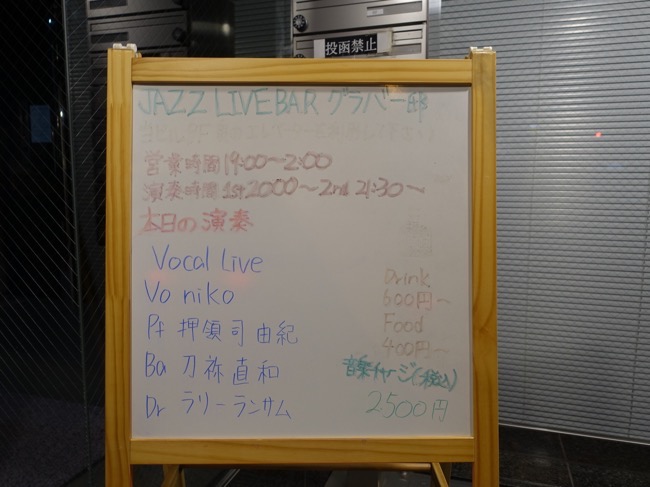 投函禁止
JAZZ LIVE BAR グラバー邸
営業時間 19:00～2:00
演奏時間 1st.20:00～2nd 21:30～
本日の演奏
Vocal Live
Vo niko
Pf 押領司由紀
Ba 刀祢直和
Dr ラリーランサム
Drink
600円～
Food
400円～
音楽チャージ(税込)
2500円